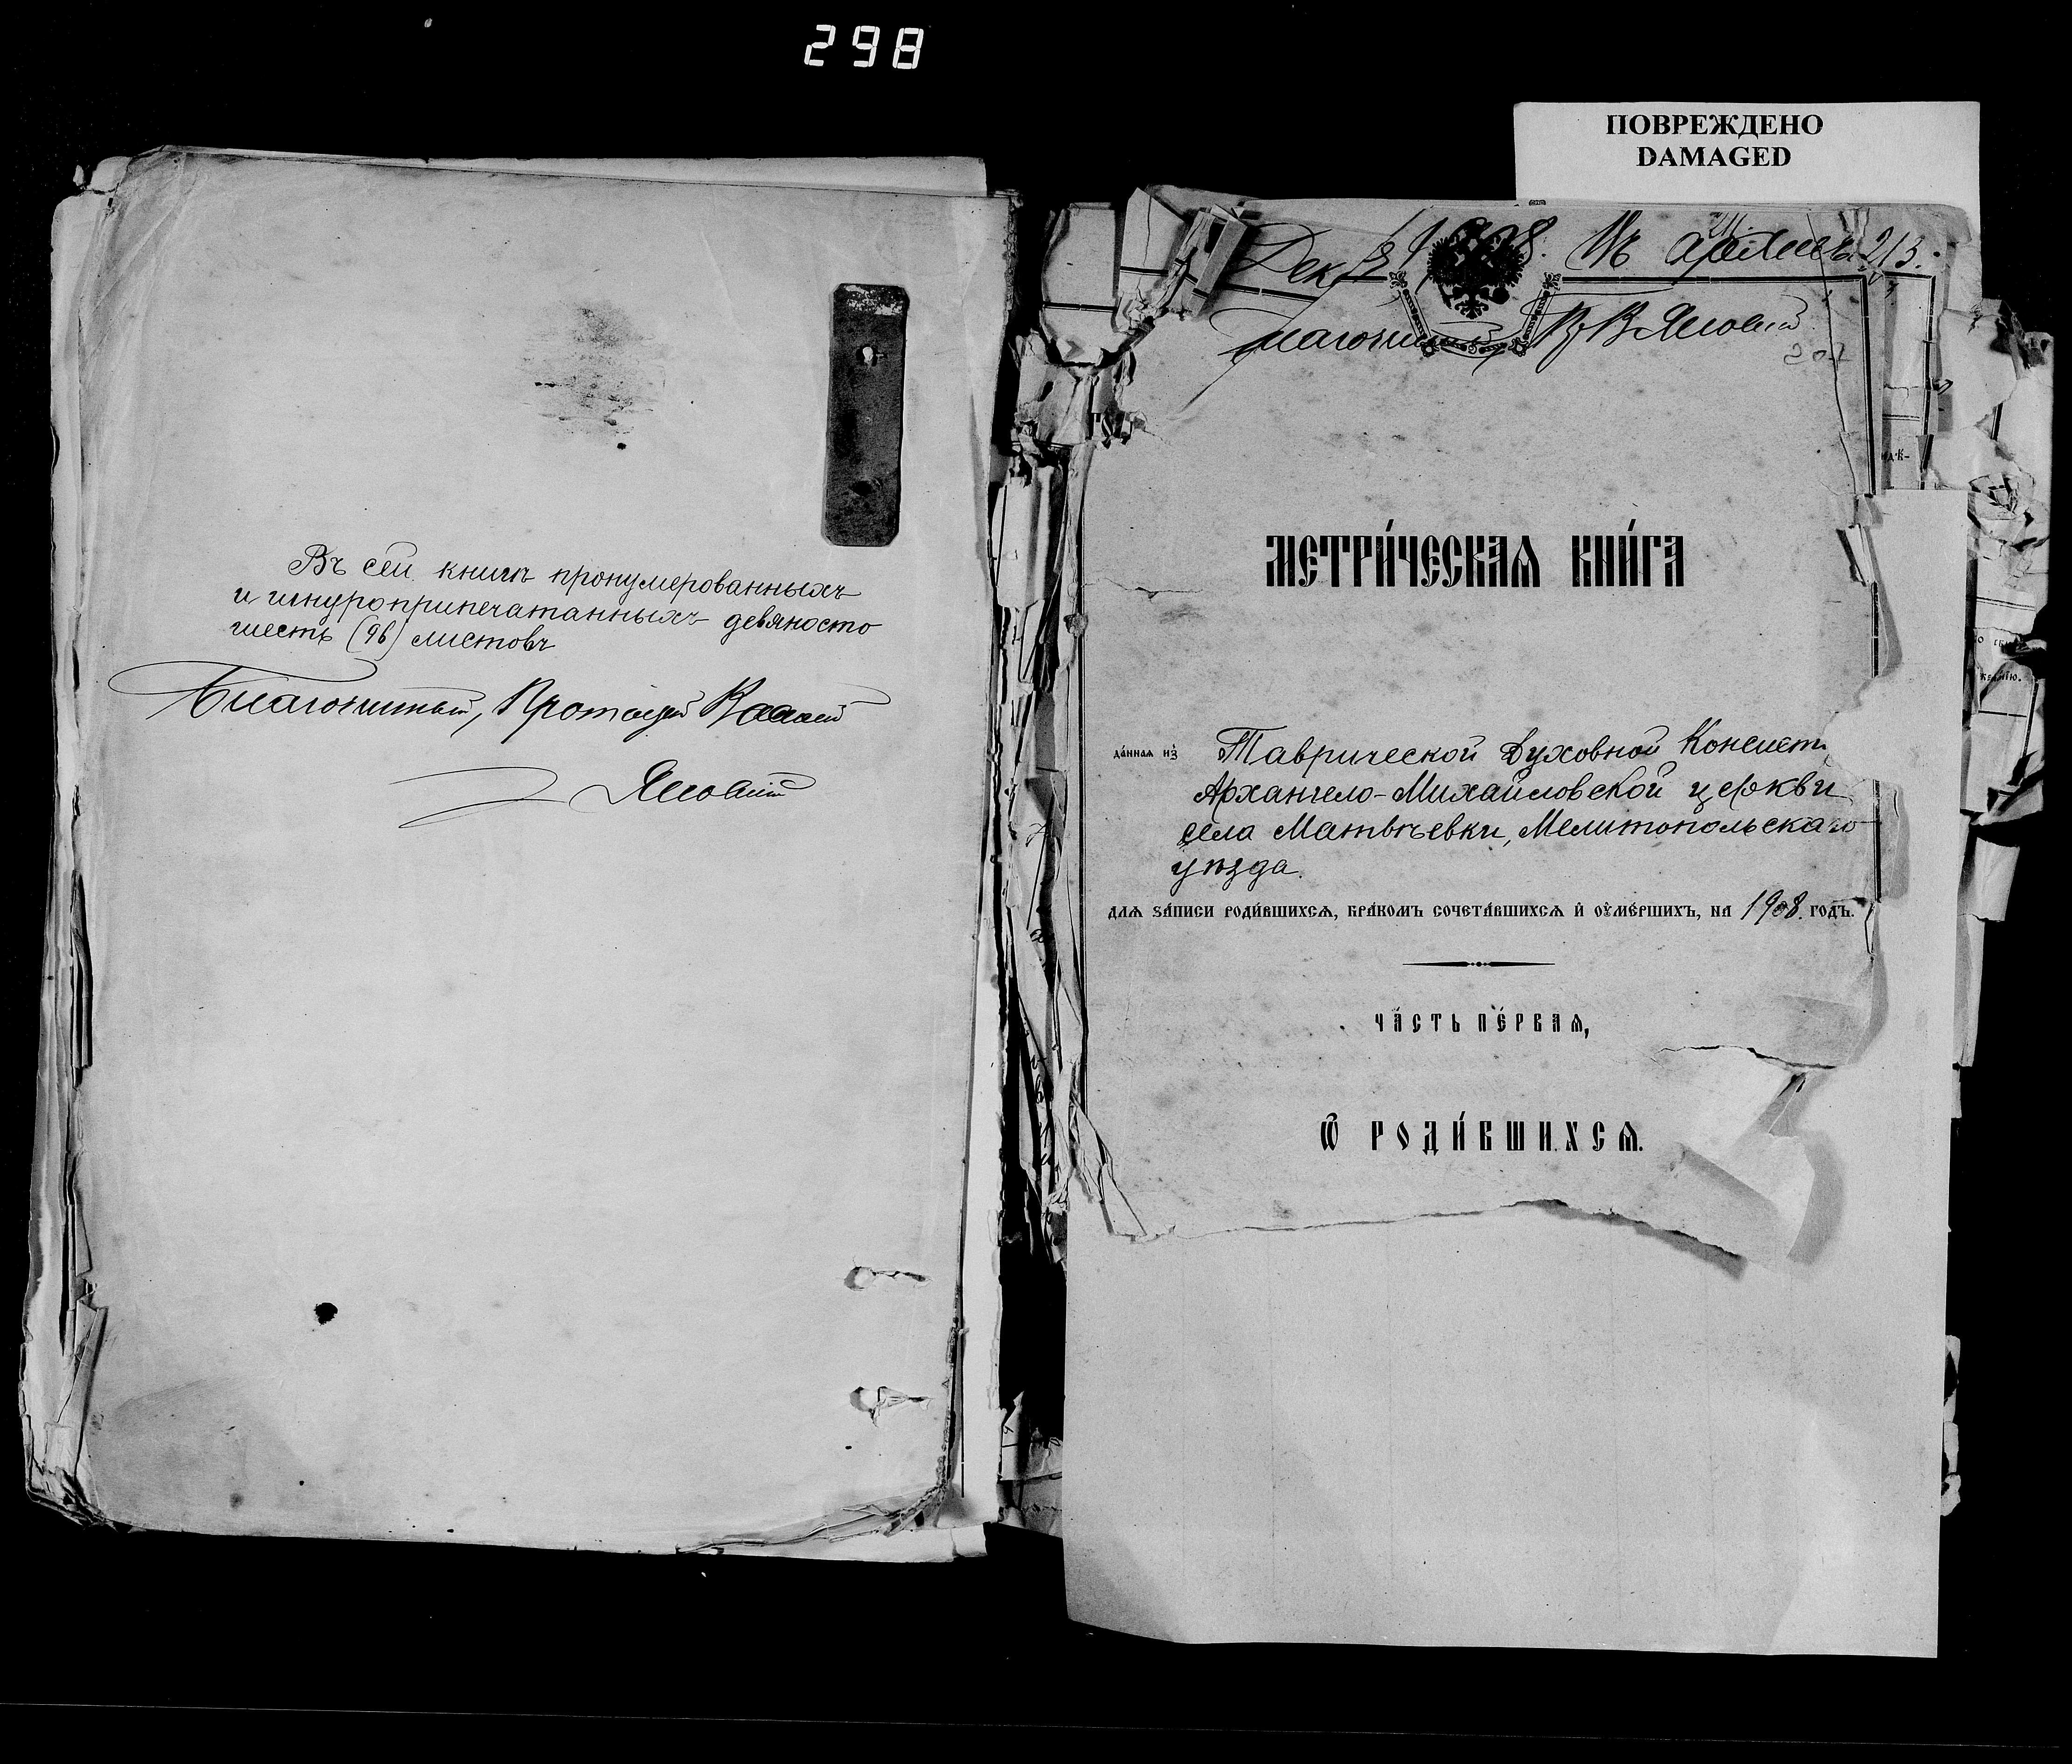 298
ПОВРЕЖДЕНО
DAMAGED
Въ сей книгѣ пронумерованныхъ
и шнуроприпечатанныхъ девяносто
шесть (96) листовъ
Благочинный, Протоіерей Василій
1908. Въ архивъ 213.
Благочинный
207
МЕТРИ́ЧЕСКАѦ КНИ́ГА
да́ннаѧ из̾ Таврической Духовной Консист
Архангело-Михайловской церкви
села Матвѣевки, Мелитопольскаго
уѣзда.
длѧ за́писи роди́вшихсѧ, бра́комъ сочета́вшихсѧ и҆ ᲂу҆ме́ршихъ, на 1908. годъ.
ЧА́СТЬ ПЕ́РВАѦ,
Ѽ РОДИ́ВШИХСѦ.